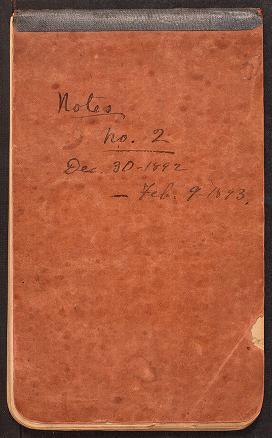 Notes
No. 2
Dec. 30-1892
— Feb. 9-1893.